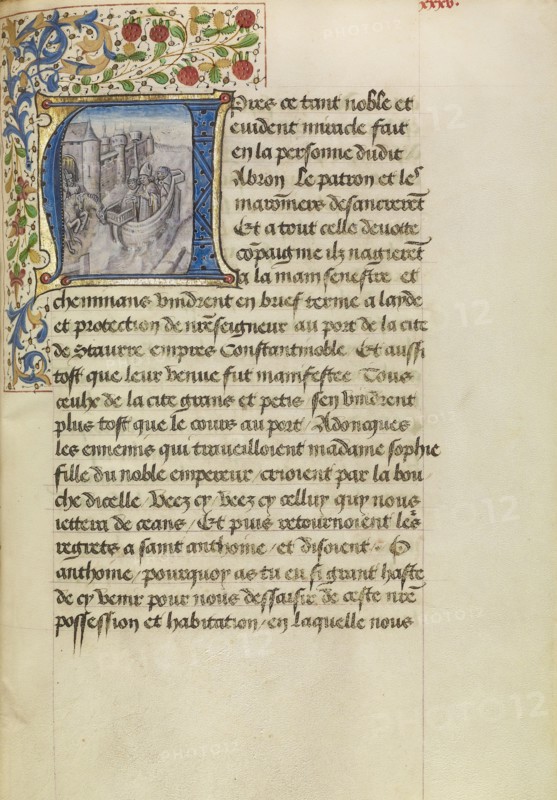 xxxv.
Apres ce tant noble et
euident miracle fait
en la personne dudit
Abron Le patron et les
maronniers desancrerēt
Et a tout celle deuote
cōpaignie ilz nagierēt
a la main senestre et
cheminans vindrent en brief terme a laide
et protection de nrēseigneur au port de la cite
de Staurre empres Constantinoble Et aussi
tost que leur venue fut manifestee Tous
ceulx de la cite grans et petis sen vindrent
plus tost que le cours au port / Adoncques
les ennemis qui trauailloient madame sophie
fille du noble empereur / crioient par la bou
che dicelle Veez cy / veez cy celluy quy nous
iettera de ceans / Et puis retournoient les
regrets a saint anthoine / et disoient O
anthoine / pourquoy as tu eu si grant haste
de cy venir pour nous dessaisir de ceste nrē
possession et habitation / en laquelle nous
PHOTO12